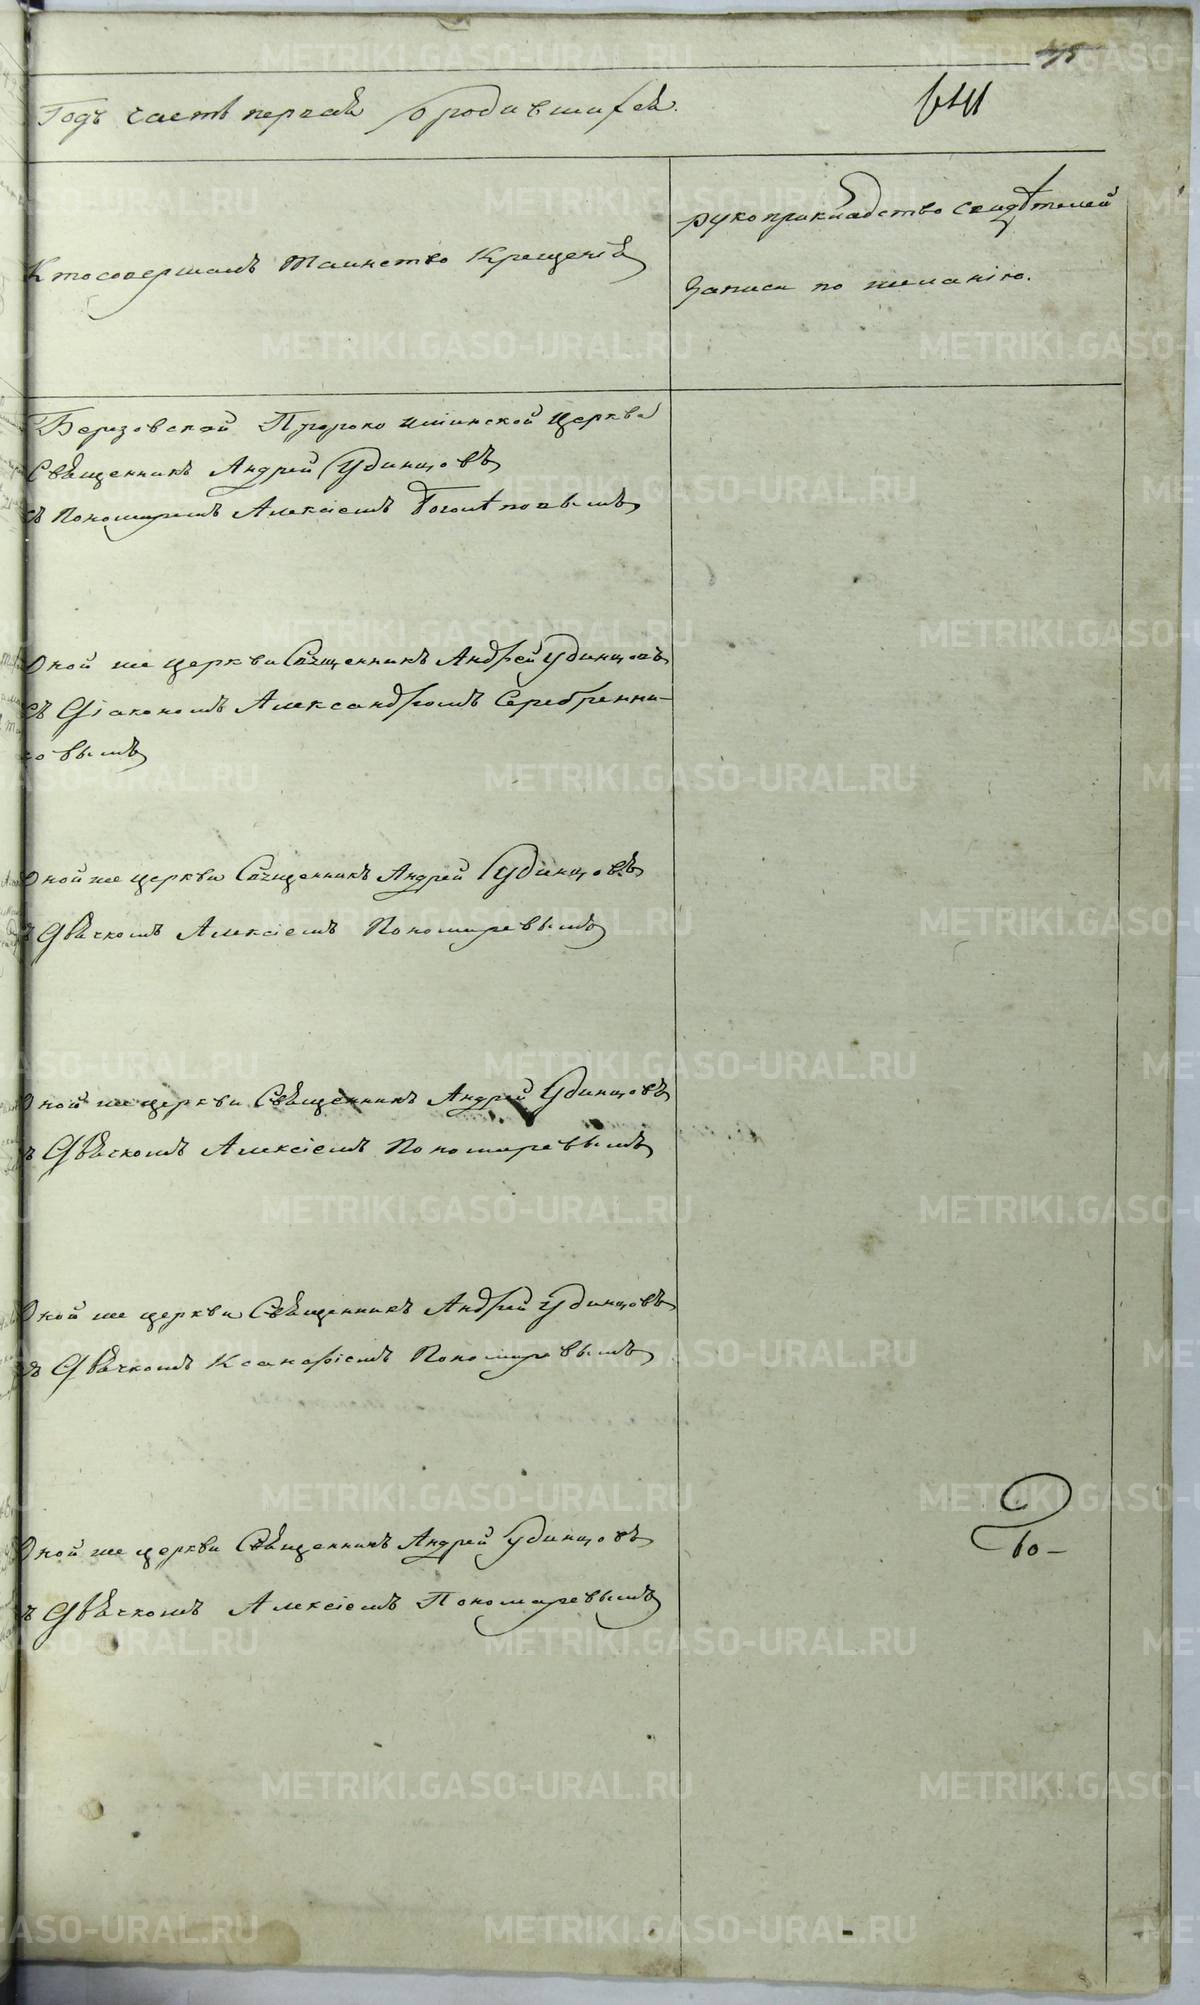 45
Годъ часть первая о родившихся.
641
Кто совершалъ Таинство Крещенія
рукоприкладство свидѣтелей
записи по желанію.
Березовской Пророко Илiинской Церкви
Священникъ Андрей Удинцовъ
съ Пономаремъ Алексіемъ
Оной же церкви Священникъ Андрей Удинцовъ
съ Діакономъ Александромъ Серебренни-
ковымъ
Оной же церкви Священникъ Андрей Удинцовъ
съ Дьячкомъ Алексіемъ Пономаревымъ
Оной же церкви Священникъ Андрей Удинцовъ
съ Дьячкомъ Алексіемъ Пономаревымъ
Оной же церкви Священникъ Андрей Удинцовъ
съ Дьячкомъ Ксанофіемъ Пономаревымъ
Оной же церкви Священникъ Андрей Удинцовъ
съ Дьячкомъ Алексіемъ Пономаревымъ
METRIKI.GASO-URAL.RU